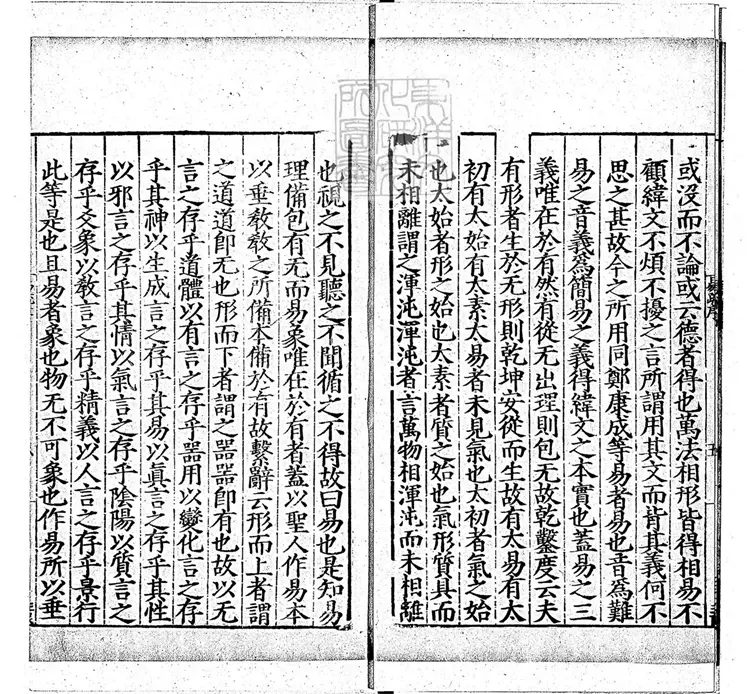 或沒而不論或云德者得也萬法相形皆得相易不
顧緯文不煩不擾之言所謂用其文而背其義何不
思之甚故今之所用同鄭康成等易者易也音爲難
易之音義爲簡易之義得緯文之本實也蓋易之三
義唯在於有然有從无出理則包无故乾鑿度云夫
有形者生於无形則乾坤安從而生故有太易有太
初有太始有太素太易者未見氣也太初者氣之始
也太始者形之始也太素者質之始也氣形質具而
未相離謂之渾沌渾沌者言萬物相渾沌而未相離
也視之不見聽之不聞循之不得故曰易也是知易
理備包有无而易象唯在於有者蓋以聖人作易本
以垂敎敎之所備本備於有故繫辭云形而上者謂
之道道卽无也形而下者謂之器器卽有也故以无
言之存乎道體以有言之存乎器用以變化言之存
乎其神以生成言之存乎其易以眞言之存乎其性
以邪言之存乎其情以氣言之存乎陰陽以質言之
存乎爻象以敎言之存乎精義以人言之存乎景行
此等是也且易者象也物无不可象也作易所以垂